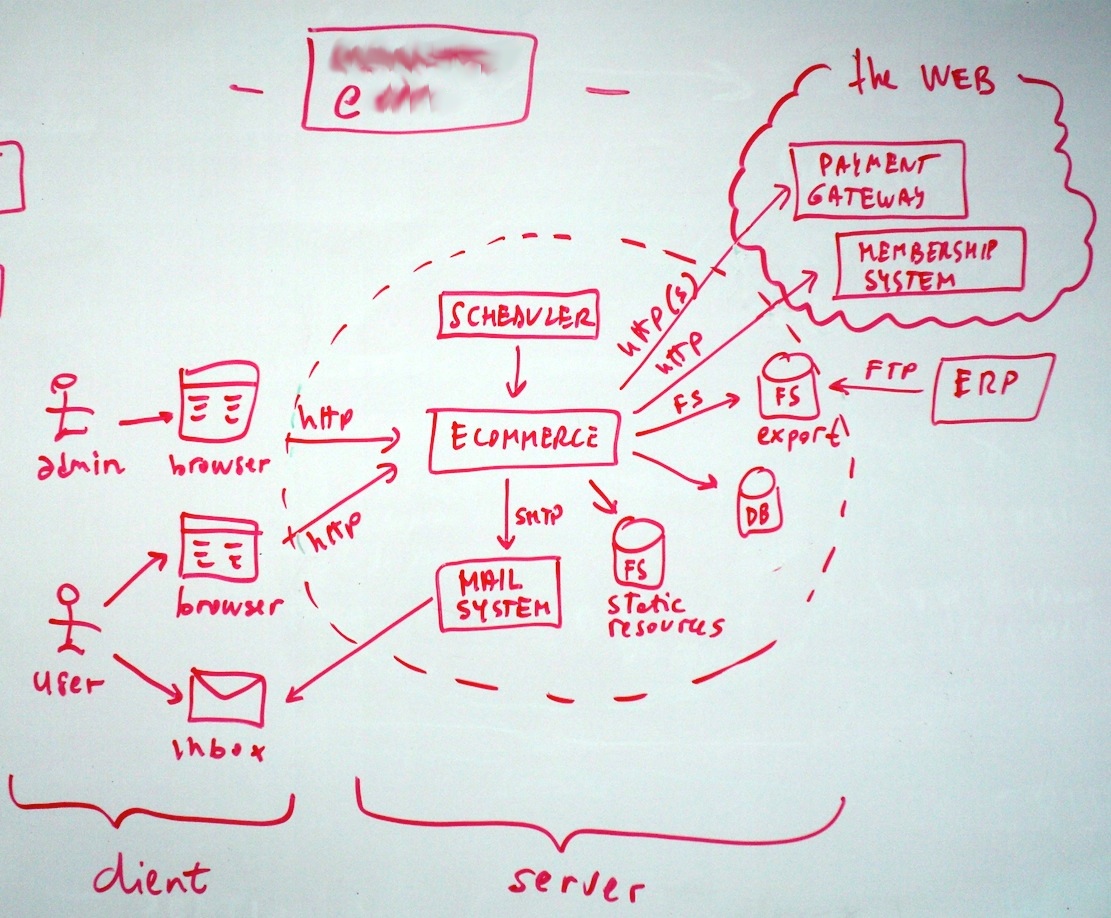 e
the WEB
PAYMENT
GATEWAY
MEMBERSHIP
SYSTEM
SCHEDULER
http(s)
http
FS
FS
export
FTP
ERP
admin
browser
http
ECOMMERCE
DB
browser
http
SMTP
MAIL
SYSTEM
FS
static
resources
user
inbox
client
server